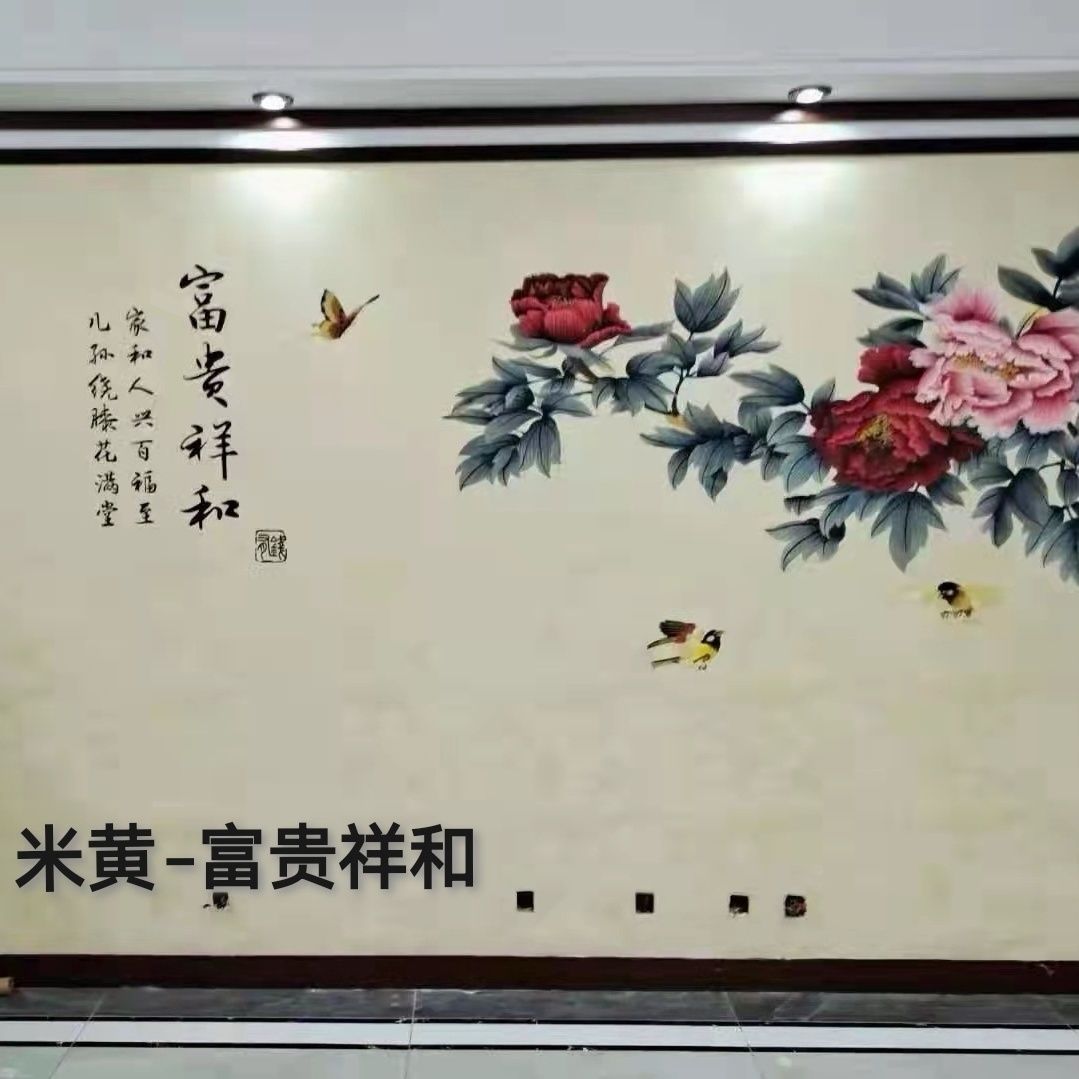 富贵祥和
家和人兴百福至
儿孙绕膝花满堂
米黄-富贵祥和